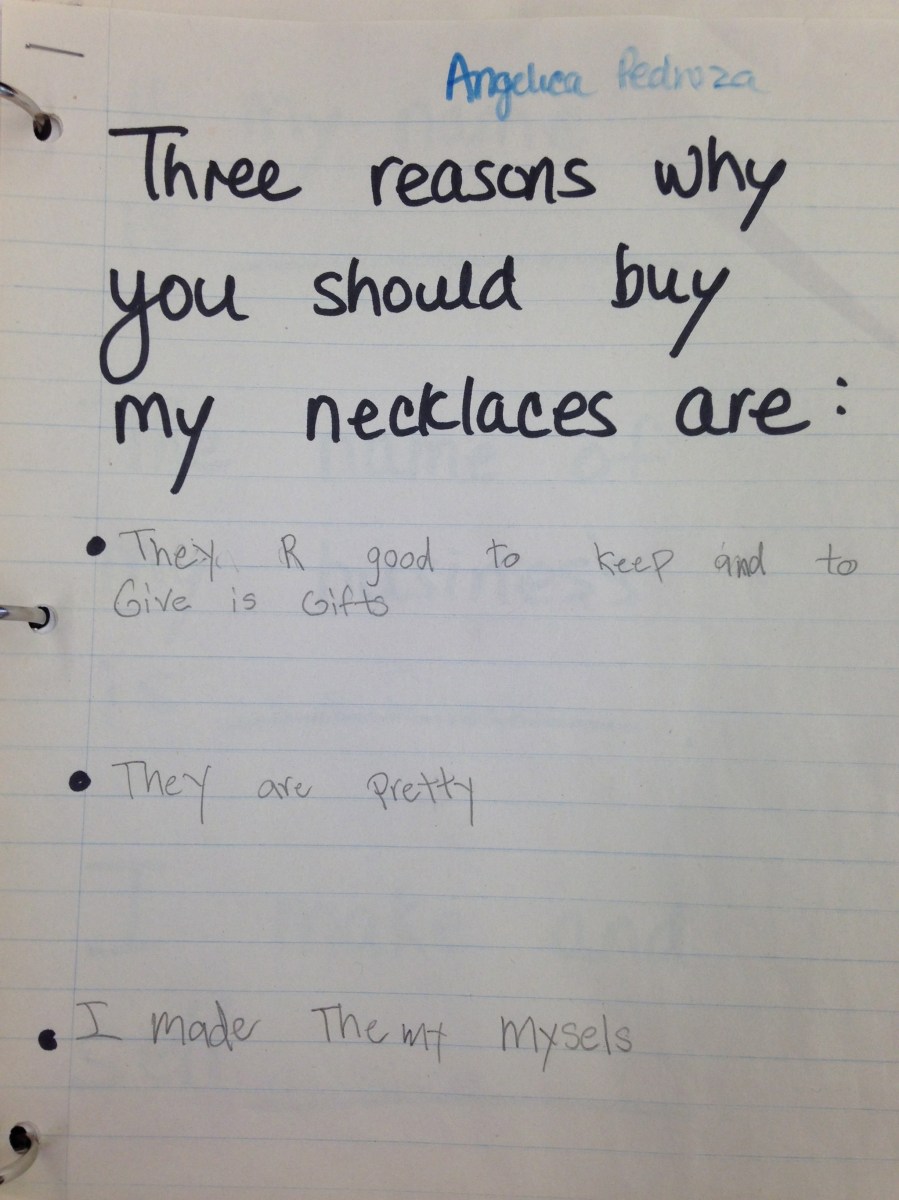 Angelica Pedroza
Three reasons why
you should buy
my necklaces are:
• They R good to keep and to
Give is Gifts
• They are pretty
• I made Themy mysels